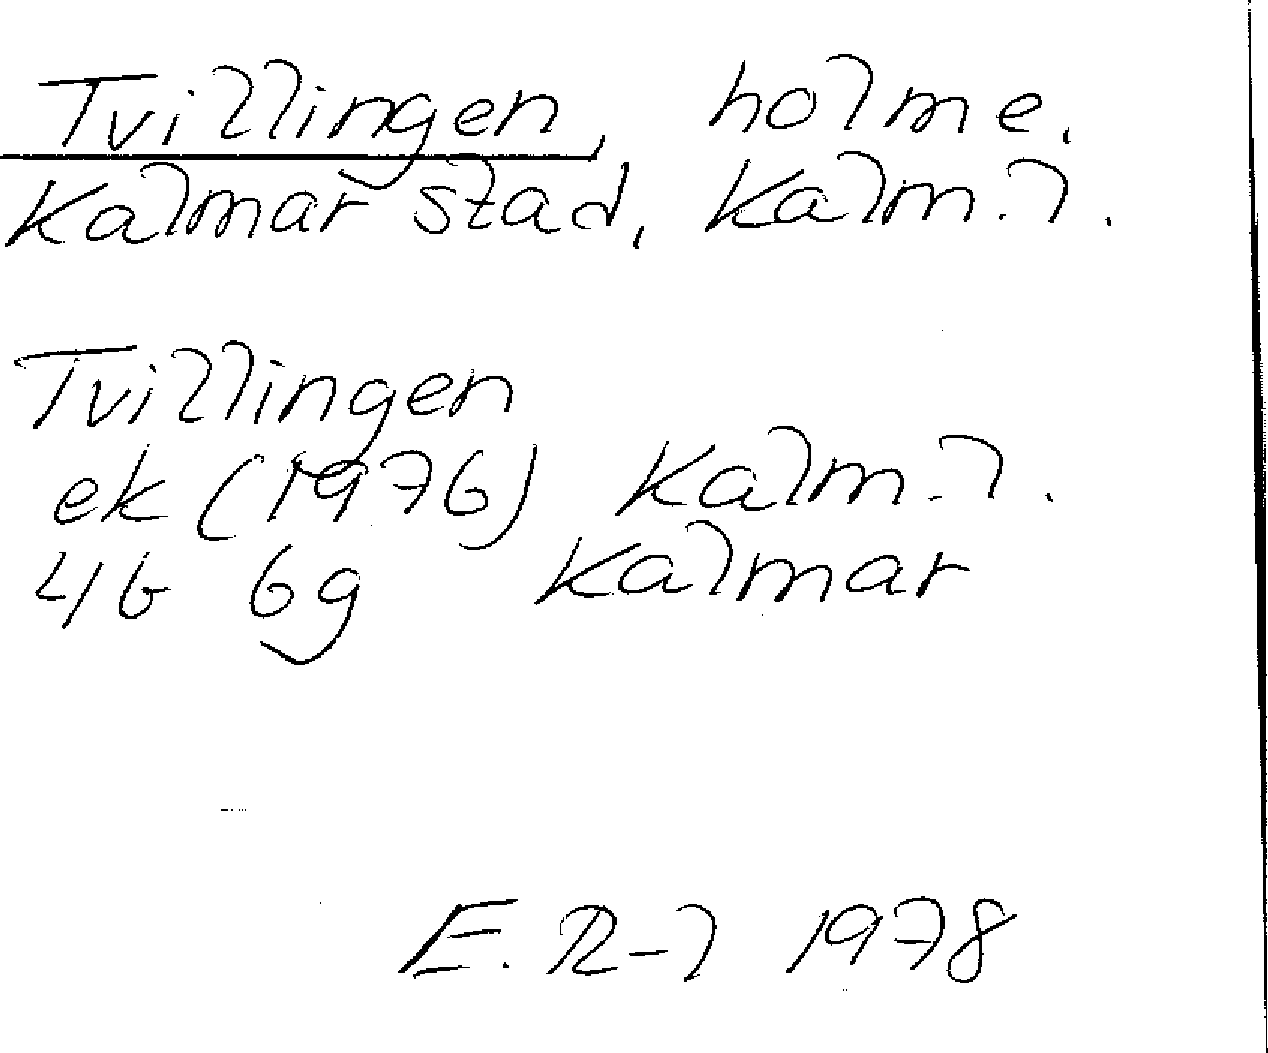 Tvillingen, holme.
Kalmar stad, Kalm. l.
Tvillingen
ek (1976) Kalm. l.
4G 6g Kalmar
E. R-l 1978